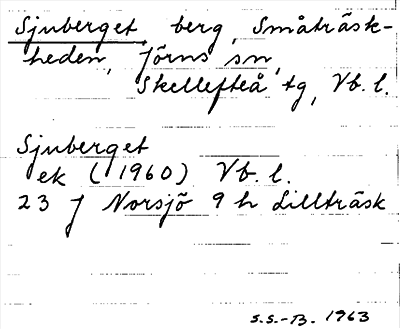 Sjuberget, berg, Småträsk-
heden, Jörns sn,
Skellefteå tg, Vb. l.
Sjuberget
ek (1960) Vb. l.
23 J Norsjö 9 h Lillträsk
S.S.-B. 1963